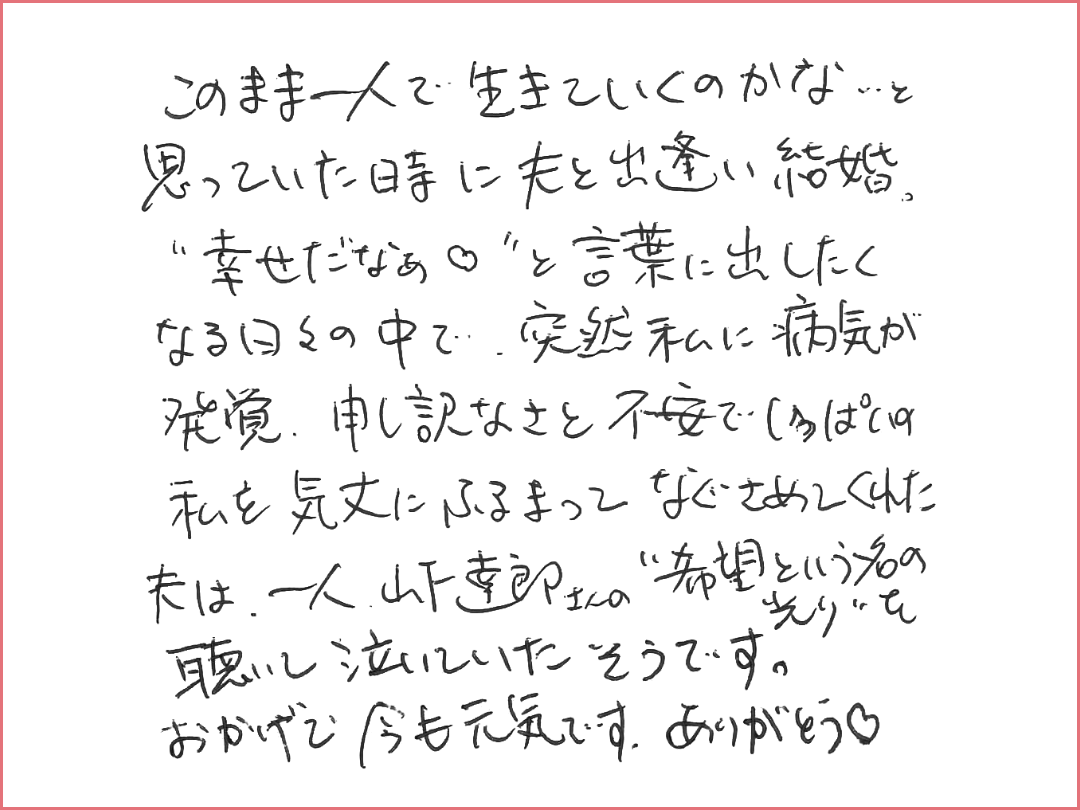 このまま一人で生きていくのかな…と
思っていた時に夫と出逢い結婚。
“幸せだなぁ♡”と言葉に出したく
なる日々の中で、突然私に病気が
発覚、申し訳なさと不安でいっぱいの
私を気丈にふるまってなぐさめてくれた
夫は、一人、山下達郎さんの“希望という名の
光り”を
聴いて泣いていたそうです。
おかげで今も元気です。ありがとう♡